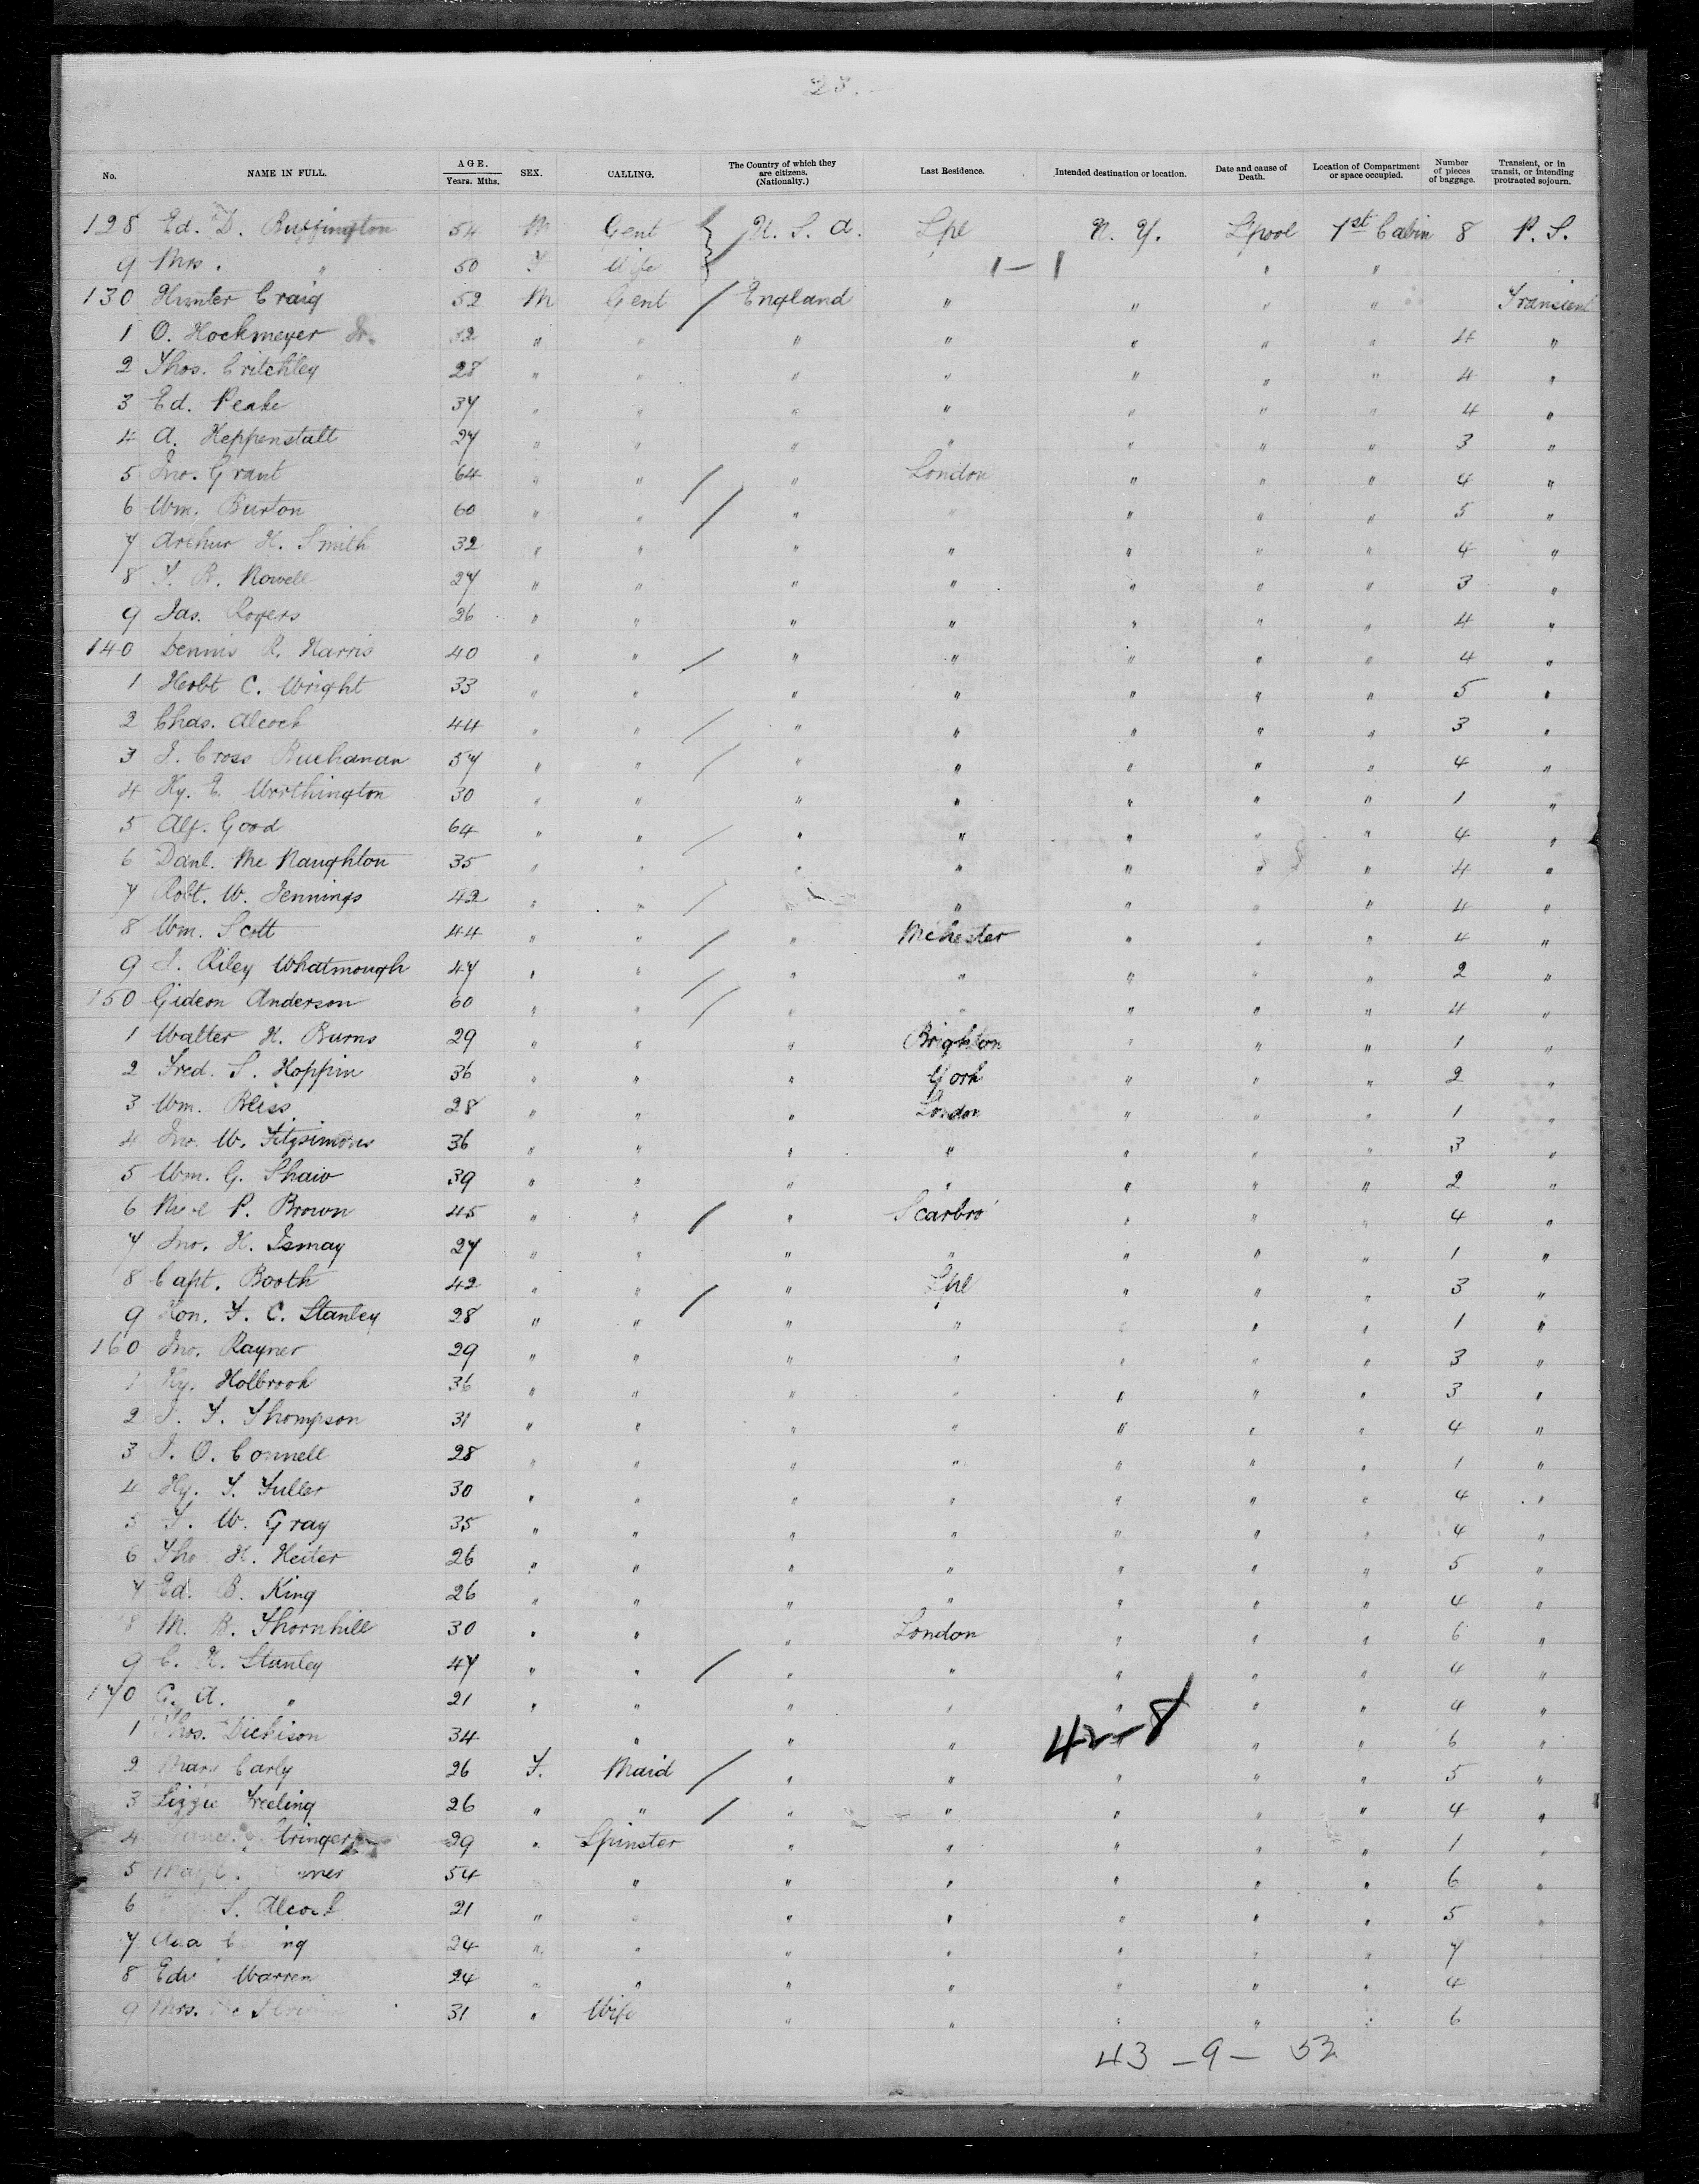 23.
No. NAME IN FULL. AGE. Years. Mths. SEX. CALLING. The Country of which they are citizens. (Nationalty.) Last Residence. Intended destination or location. Date and cause of Death. Location of Compartment or space occupied. Number of pieces of baggage. Transient, or in transit, or intending protracted sojourn.
128 Ed. D. Buffington 54 M Gent U. S. A. Lpl N. Y. L'pool 1st Cabin 8 P. S.
9 Mrs. " 50 F Wife 1-1 " "
130 Hunter Craig 52 M Gent / England " " " " Transient
1 O. Hockmeyer " " " " " " " 4 "
2 Thos. Critchley 28 " " " " " " " 4 "
3 Ed. Peake 37 " " " " " " " 4 "
4 A. Heppenstall 27 " " " " " " " 3 "
5 Jno. Grant 64 " " / " London " " " 4 "
6 Wm. Burton 60 " " / " " " " " 5 "
7 Arthur H. Smith 32 " " " " " " " 4 "
8 T. B. Nowell 27 " " " " " " " 3 "
9 Jas. Rogers 26 " " " " " " " 4 "
140 Dennis R. Harris 40 " " / " " " " " 4 "
1 Herbt C. Wright 33 " " " " " " " 5 "
2 Chas. Alcock 44 " " / " " " " " 3 "
3 J. Cross Buchanan 57 " " / " " " " " 4 "
4 Hy. E. Worthington 30 " " " " " " " 1 "
5 Alf. Good 64 " " / " " " " " 4 "
6 Danl. Mc Naughton 35 " " " " " " " 4 "
7 Robt. W. Jennings 42 " " / " " " " 4 "
8 Wm. Scott 44 " " / " Mchester " " " 4 "
9 J. Riley Whatmough 47 " " / " " " " " 2 "
150 Gideon Anderson 60 " " / " " " " " 4 "
1 Walter H. Burns 29 " " " Brighton " " " 1 "
2 Fred. S. Hoppin 36 " " " York " " " 2 "
3 Wm. Bliss 28 " " " London " " " 1 "
4 Jno. W. Fitzsimons 36 " " " " " " " 3 "
5 Wm. G. Shaw 39 " " " " " " " 2 "
6 P. Brown 45 " " / " Scarbro' " " " 4 "
7 Jno. H. Ismay 27 " " " " " " " 1 "
8 Capt. Booth 42 " " / " Lpl " " " 3 "
9 Hon. F. C. Stanley 28 " " " " " " " 1 "
160 Jno. Rayner 29 " " " " " " " 3 "
1 Hy. Holbrook 36 " " " " " " " 3 "
2 J. F. Thompson 31 " " " " " " " 4 "
3 J. O. Connell 28 " " " " " " " 1 "
4 Hy. T. Fuller 30 " " " " " " " 4 "
5 W. Gray 35 " " " " " " " 4 "
6 Tho H. Heiter 26 " " " " " " " 5 "
7 Ed. B. King 26 " " " " " " " 4 "
8 M. B. Thornhill 30 " " " London " " " 6 "
9 C. H. Stanley 47 " " / " " " " " 4 "
170 G. A. " 21 " " " " " " " 4 "
1 Thos. Dickison 34 " " " 42-8 " " 6 "
2 Mary Carly 26 F. Maid / " " " " " 5 "
3 Lizzie Freeling 26 " " / " " " " " 4 "
4 Stringer 29 " Spinster " " " " " 1 "
5 54 " " " " " " 6 "
6 S. Alcock 21 " " " " " " " 5 "
7 24 " " " " " " " 7
8 Warren 24 " " " " " " " 4
9 Mrs. 31 " Wife " " " " " 6
43 - 9 - 52